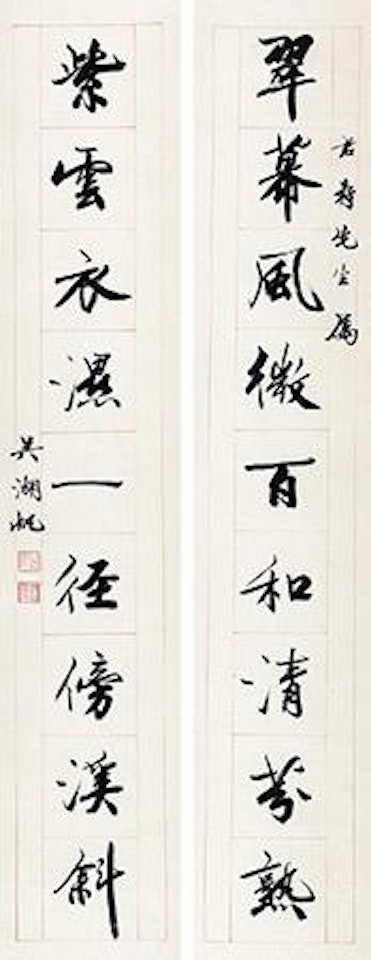 翠幕風微百和清芬熟
君壽先生屬
紫雲衣濕一徑傍溪斜
吳湖帆